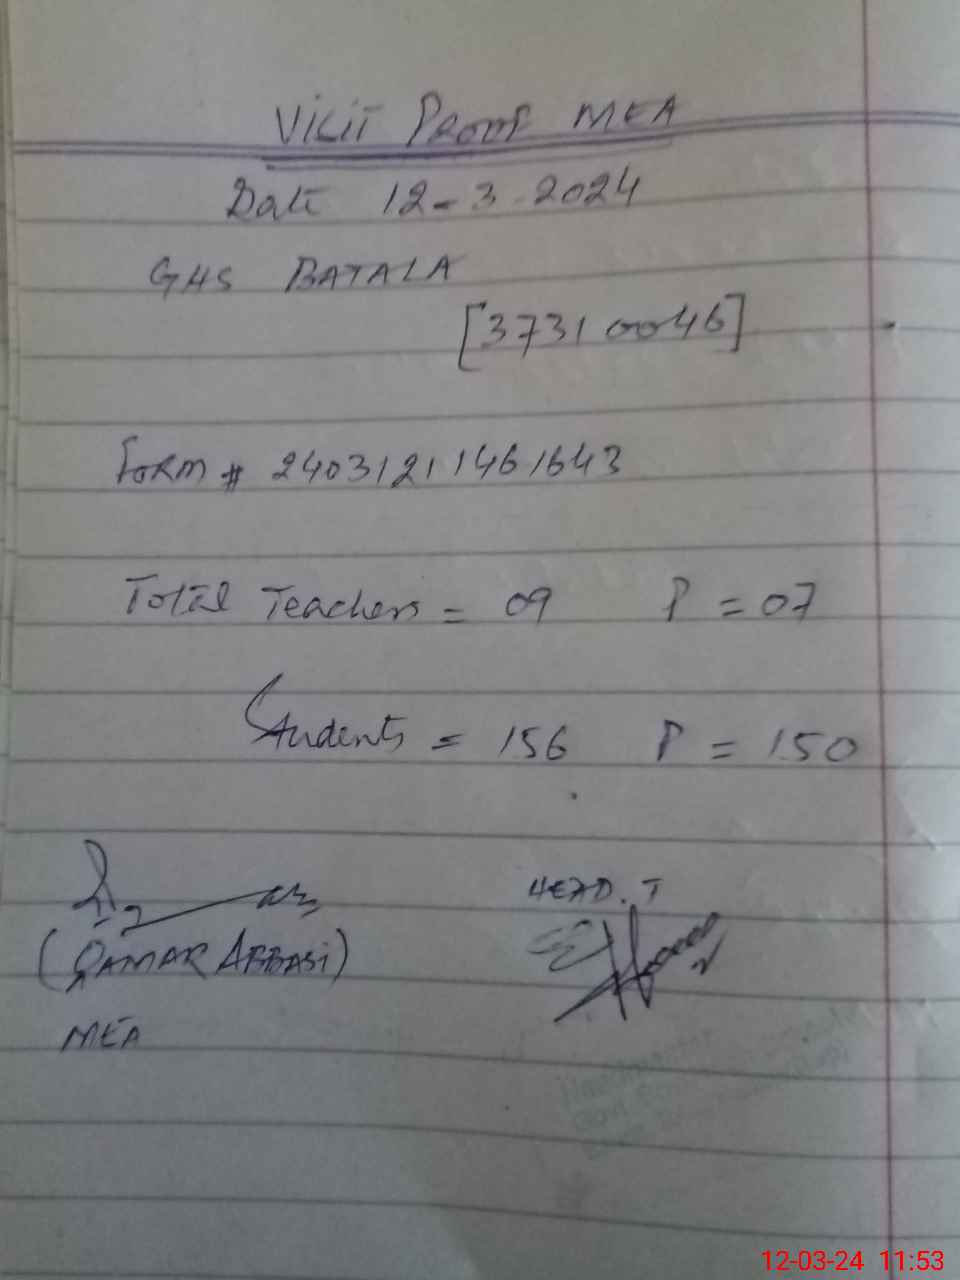 Visit Proof MEA
Date 12-3-2024
GHS BATALA
[37310046]
Form # 24031211461643
Total Teachers = 09 P = 07
Students = 156 P = 150
HEAD.T
(QAMAR ABBASI)
MEA
Headmaster
12-03-24 11:53